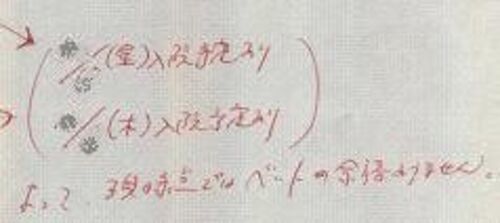 /15(金)入院予定あり
/(木)入院予定あり
よって、現時点ではベットの余裕ありません。